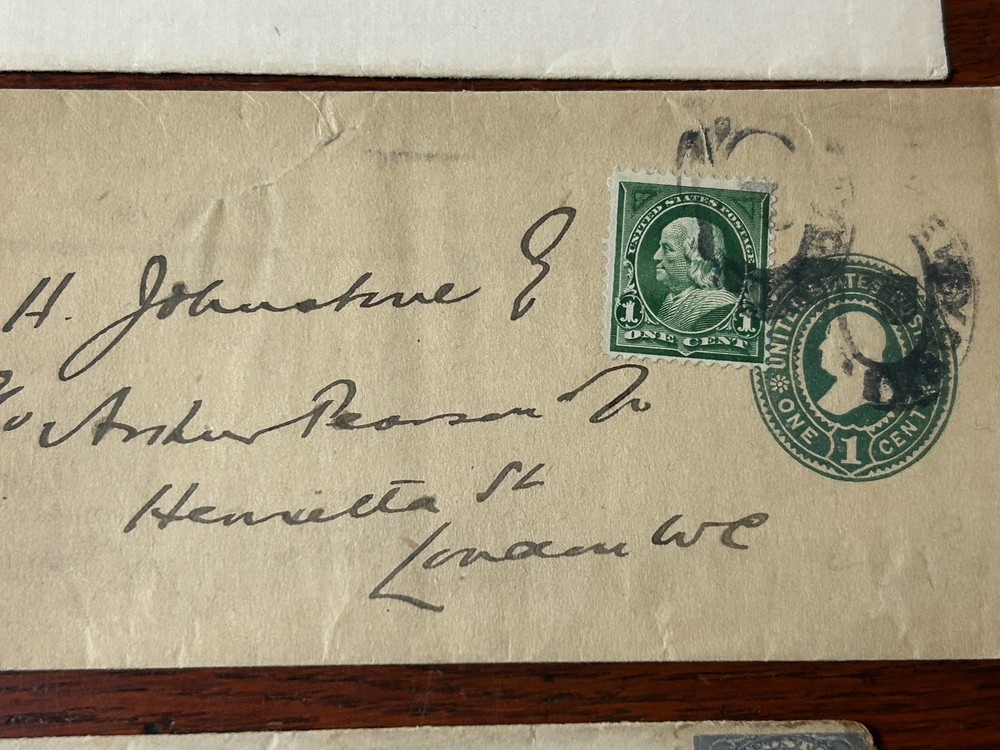 H. Johnstone E
Arthur Pearson
Henrietta St
London WC
UNITED STATES POSTAGE
1 1
ONE CENT
UNITED STATES
ONE 1 CENT